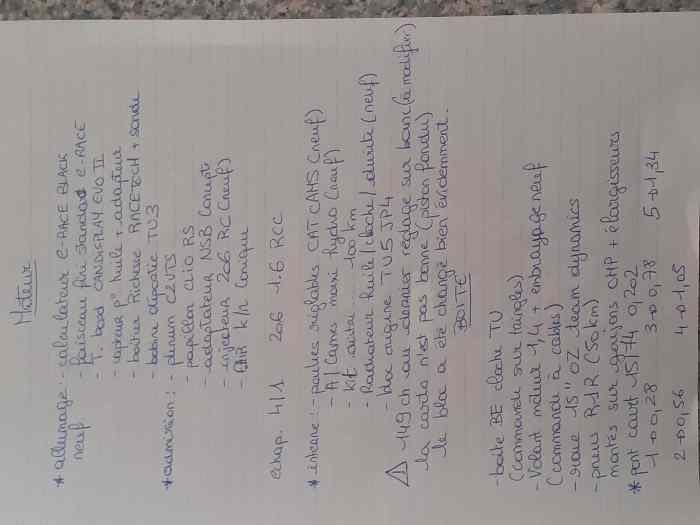 Moteur
* allumage : - calculateur E-RACE BLACK
- faisceau fiw standard E-RACE
neuf - T. bord CANDISPLAY EVO II
- capteur P° huile + adapteur
- boitier Richesse RACETECH + sonde
- bobine dipositif TU3
* admission : - plenum C2VTS
- papillon CLIO RS
- adaptateur NSB Concept
- injecteur 206 RC (neuf)
- FAIR K/N conique
echap. 4/1 206 1.6 RCC
* interne : - poulies réglables CAT CAMS (neuf)
- A/Cames maxi hydro (neuf)
- Kit dater... 100 km
- Radiateur huile / cloche / durite (neuf)
- bloc origine TU5 JP4
⚠ - 149 ch au dernier réglage sur banc (à modifier)
la carto n'est pas bonne (piston fondu)
le bloc a été changé bien évidemment.
BOITE
- boite BE cloche TU
(Commande sur tringles)
- Volant moteur 1,4 + embrayage neuf
(commande à cables)
- roue 15" OZ team dynamics
- pneus R1R (50 km)
montés sur goujons CHP + élargisseurs
* pont court 15/74 0,202
- 1 → 0,28 3 → 0,78 5 → 1,34
2 → 0,56 4 → 1,05